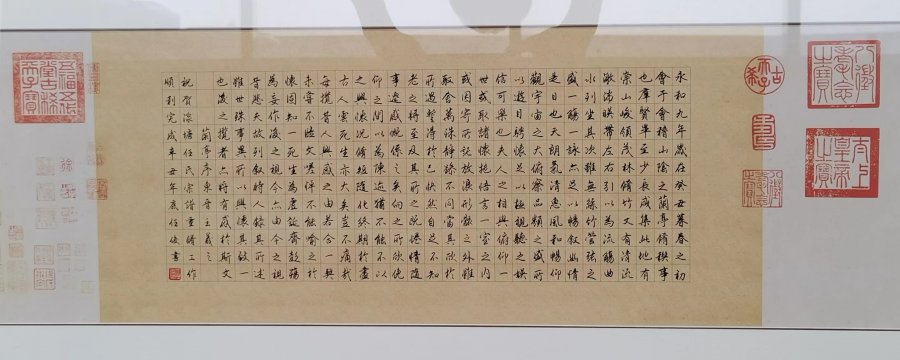 八徵耄念之寶
太上皇帝之寶
古稀天子
壽
永和九年歲在癸丑暮春之初
會于會稽山陰之蘭亭脩稧事
也群賢畢至少長咸集此地有
崇山峻領茂林脩竹又有清流
激湍映帶左右引以為流觴曲
水列坐其次雖無絲竹管弦之
盛一觴一詠亦足以暢叙幽情
是日也天朗氣清惠風和暢仰
觀宇宙之大俯察品類之盛所
以遊目騁懷足以極視聽之娛
信可樂也夫人之相與俯仰一
世或取諸懷抱悟言一室之内
或因寄所託放浪形骸之外雖
趣舍萬殊靜躁不同當其欣於
所遇暫得於己快然自足不知
老之將至及其所之既惓情隨
事遷感慨係之矣向之所欣俛
仰之間以為陳迹猶不能不以
之興懷況脩短隨化終期於盡
古人云死生亦大矣豈不痛哉
每攬昔人興感之由若合一契
未嘗不臨文嗟悼不能喻之於
懷固知一死生為虛誕齊彭殤
為妄作後之視今亦由今之視
昔悲夫故列叙時人錄其所述
雖世殊事異所以興懷其致一
也後之攬者亦將有感於斯文
蘭亭序東晉王羲之
祝賀塘任氏宗譜重脩工作
順利完成辛丑年任俊書
五福五代堂古稀天子寶